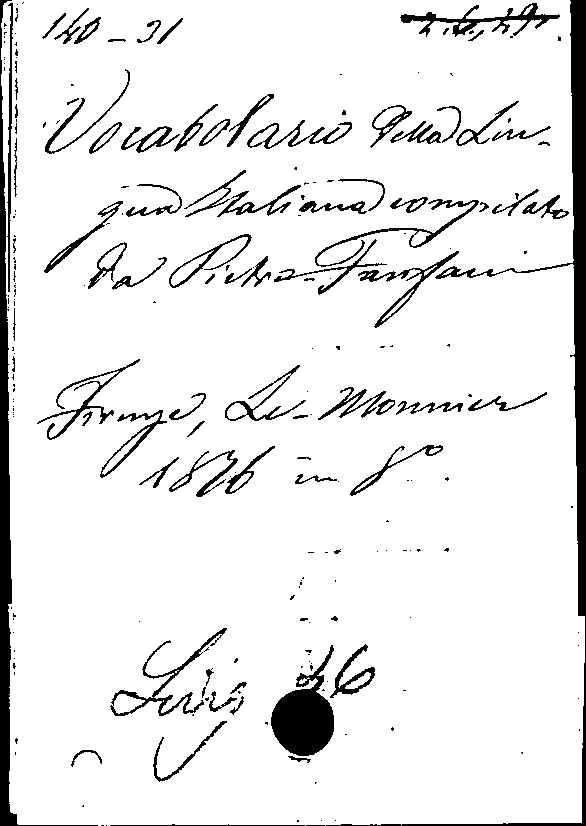 140-31
Vocabolario della Lin-
gua Italiana compilato
da Pietro Fanfani
Firenze, Le-Monnier
1876 in 8º.
46